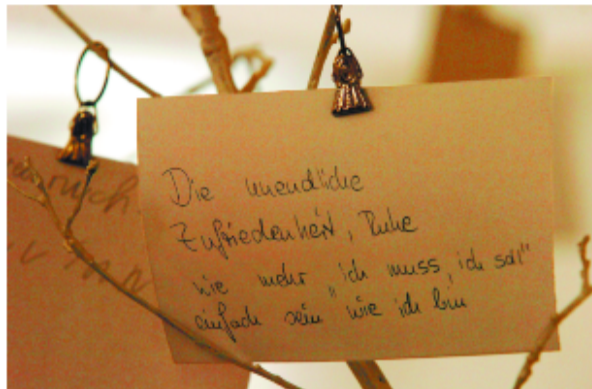 Die unendliche
Zufriedenheit, Ruhe
nie mehr "ich muss, ich soll"
einfach sein wie ich bin